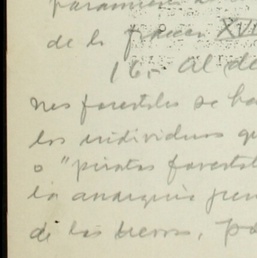 de la fraccion XVI
16.- Al de
nes forestales se ha
los individuos qu
o "piratas forestal
la anarquia
de las tierras, pa